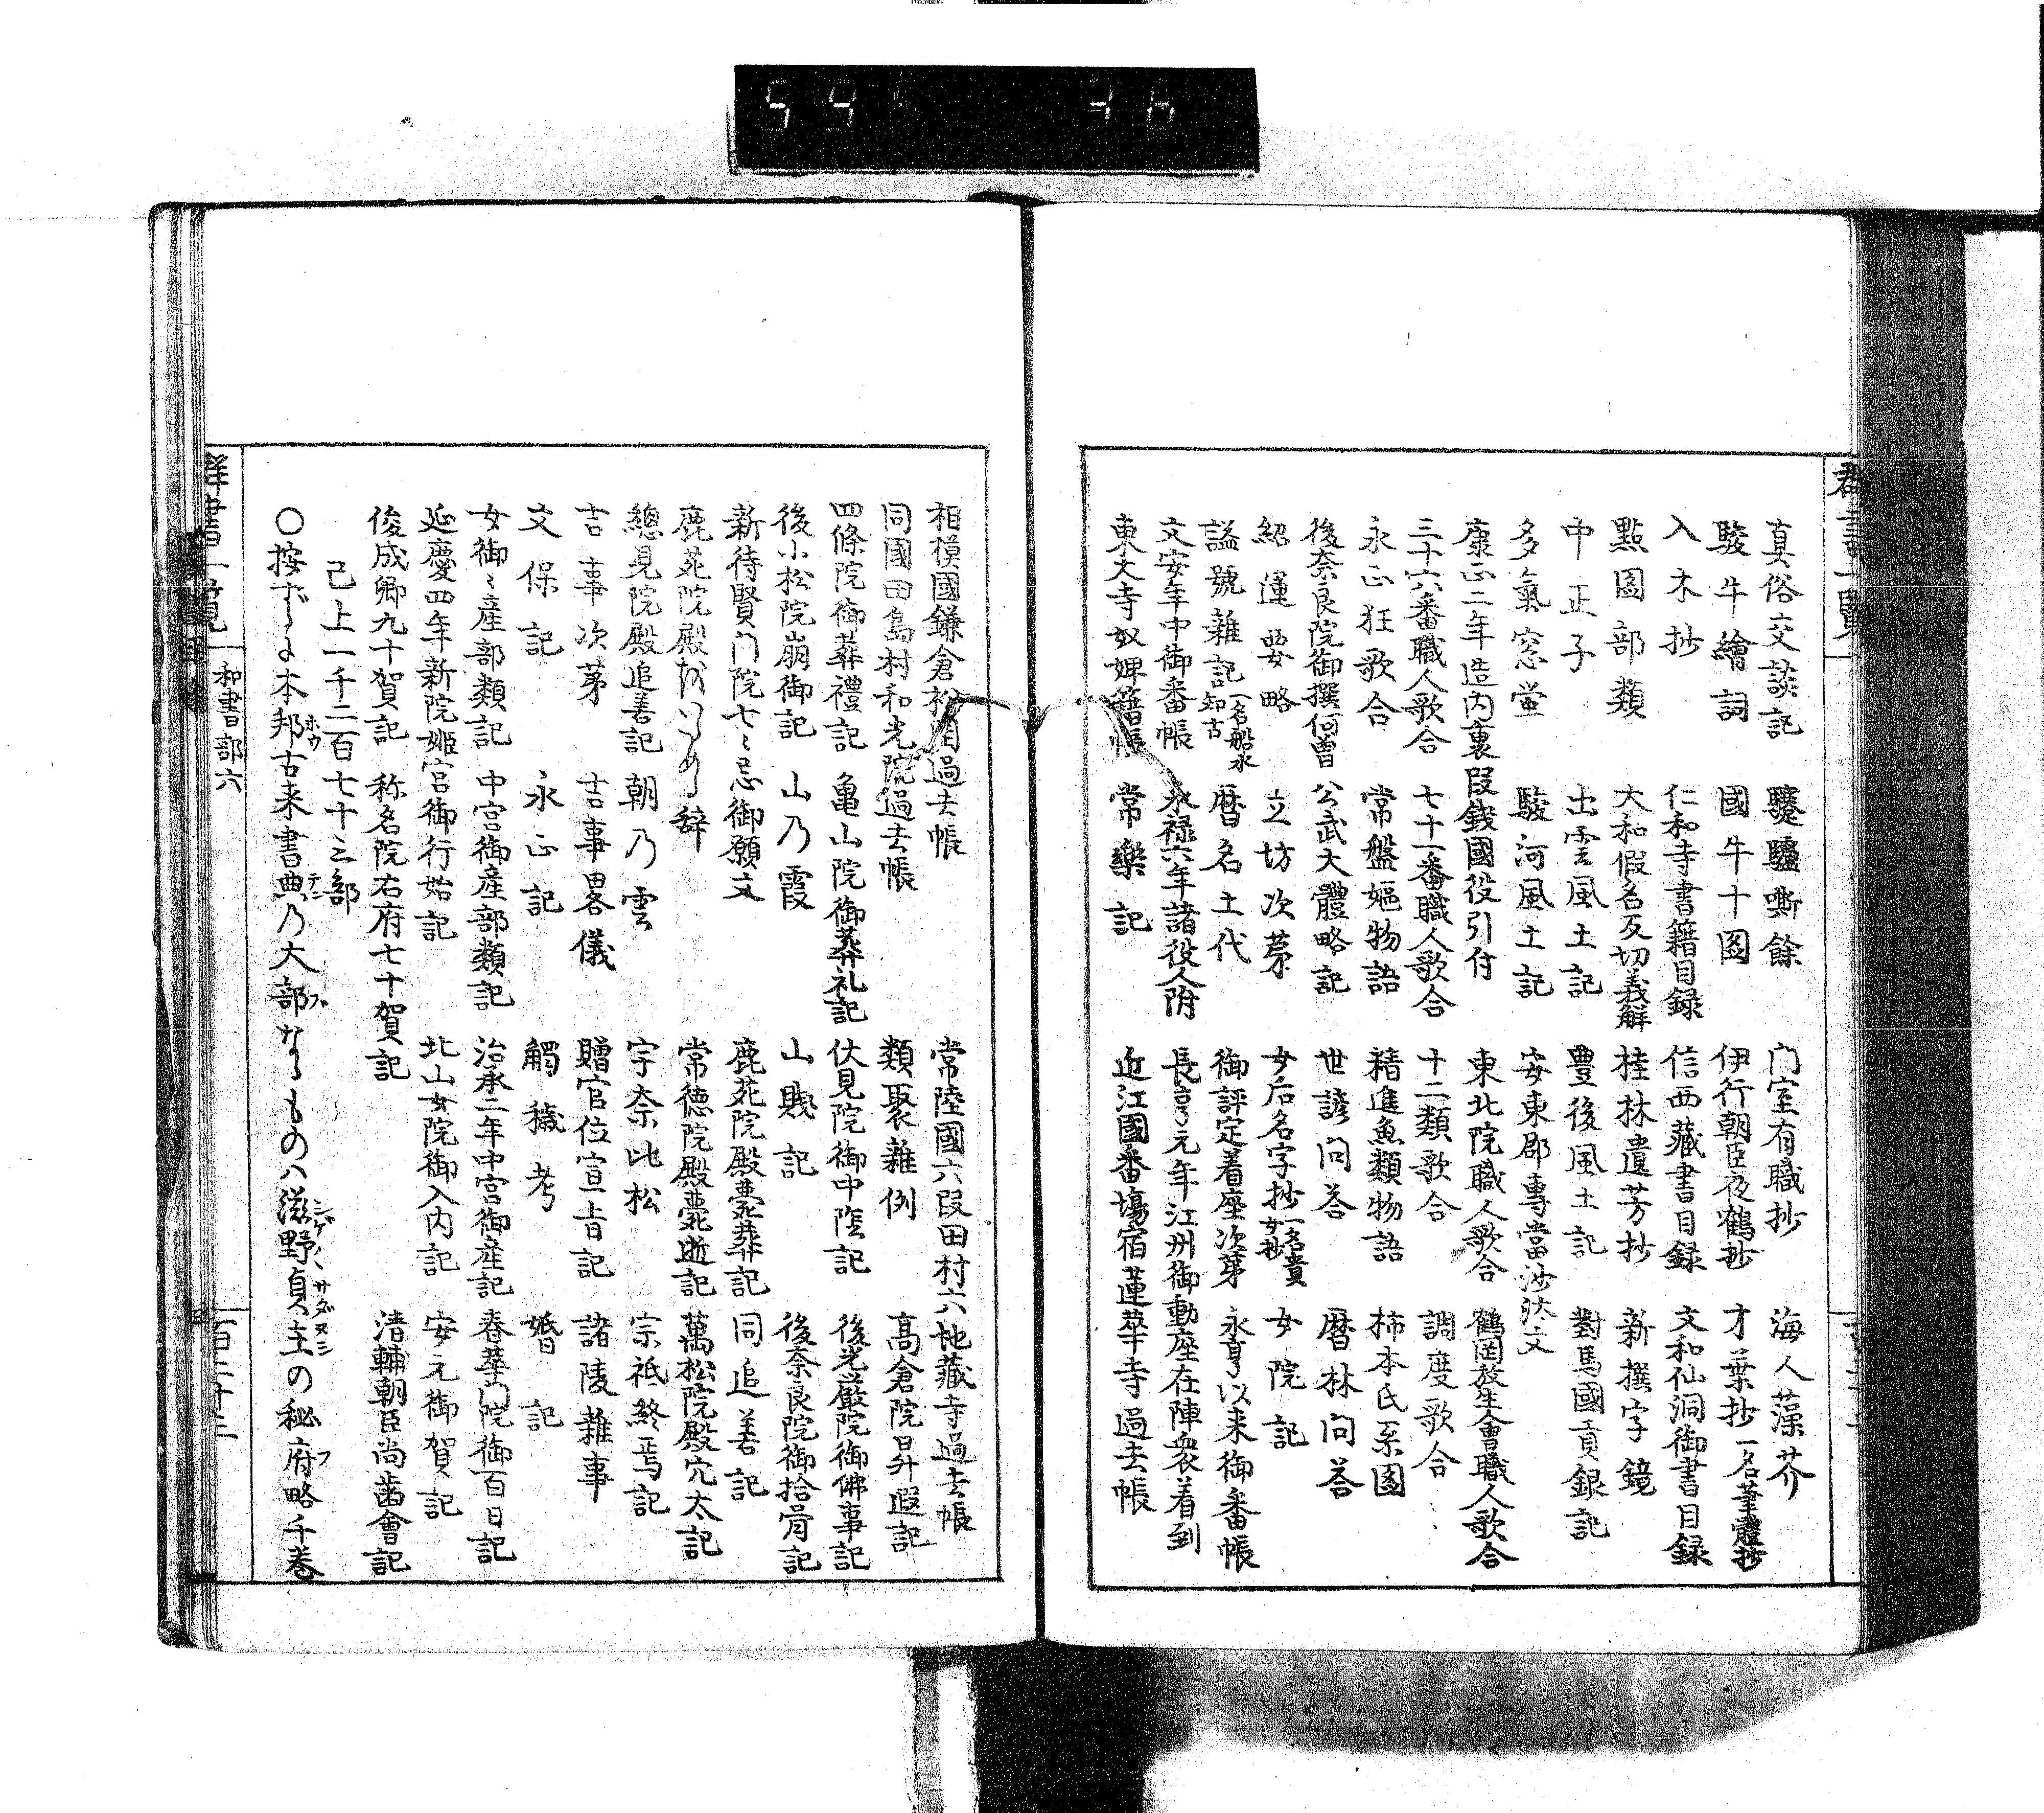 真俗交談記　驥驢嘶餘　门室有職抄　海人藻芥
駿牛繪詞　國牛十圖　伊行朝臣夜鶴抄　才葉抄一名筆體抄
入木抄　仁和寺書籍目録　信西藏書目録　文和仙洞御書目録
點圖部類　大和假名反切義解　桂林遺芳抄　新撰字鏡
中正子　出雲風土記　豐後風土記　對馬國貢銀記
多氣窓螢　駿河風土記　安東郡專當沙汰文
康正二年造内裏段錢國役引付　東北院職人歌合　鶴岡放生會職人歌合
三十六番職人歌合　七十一番職人歌合　十二類歌合　調度歌合
永正狂歌合　常盤嫗物語　精進魚類物語　柿本氏系圖
後奈良院御撰何曽　公武大體略記　世諺问荅　暦林问荅
紹運要略　立坊次苐　女后名字抄一名貴女抄　女院記
諡號雜記一名船水知古　暦名土代　御評定着座次苐　永享以来御番帳
文安年中御番帳　永禄六年諸役人附　長享元年江州御動座在陣衆着到
東大寺奴婢籍帳　常樂記　近江國番塲宿蓮華寺過去帳
相模國鎌倉　過去帳　常陸國六段田村六地藏寺過去帳
同國田島村和光院過去帳　類聚雜例　髙倉院昇遐記
四條院御葬禮記　亀山院御葬礼記　伏見院御中陰記　後光嚴院御佛事記
後小松院崩御記　山乃霞　山賤記　後奈良院御拾骨記
新待賢门院七ゝ忌御願文　鹿苑院殿薨葬記　同追善記
鹿苑院殿　辞　常德院殿薨逝記　萬松院殿穴太記
總見院殿追善記　朝乃雲　宇奈比松　宗祇終焉記
吉事次苐　吉事畧儀　贈官位宣旨記　諸陵雜事
文保記　永正記　觸穢考　婚記
女御ゝ産部類記　中宮御産部類記　治承二年中宮御産記　春華门院御百日記
延慶四年新院姬宮御行始記　北山女院御入内記　安元御賀記
俊成卿九十賀記　称名院右府七十賀記　清輔朝臣尚齒會記
已上一千二百七十三部
○按ずるに本邦古来書典乃大部なるものハ滋野貞主の秘府略千巻
群書一覧　和書部六